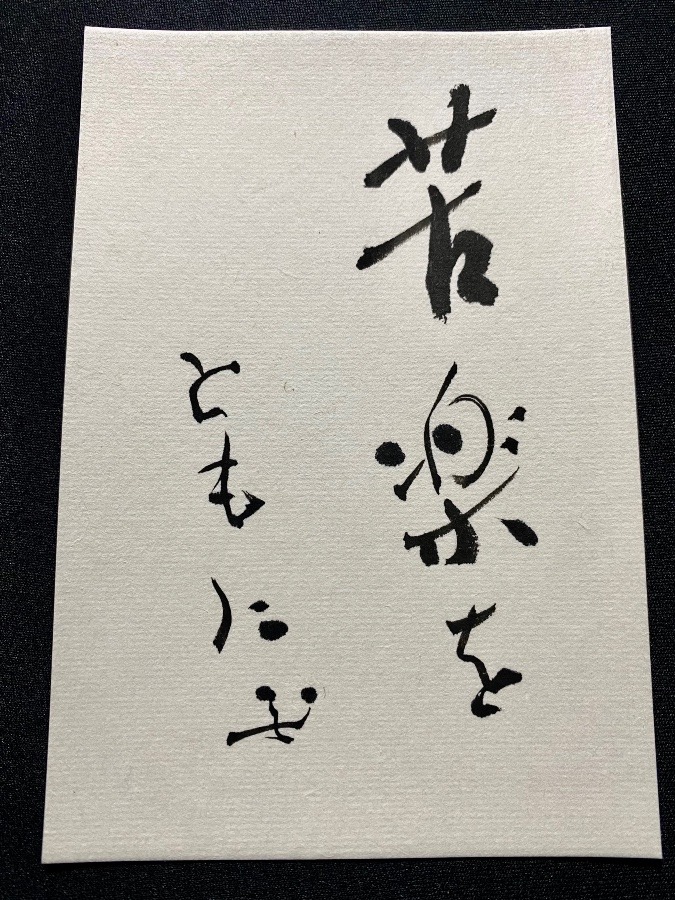 苦楽を
ともにせ